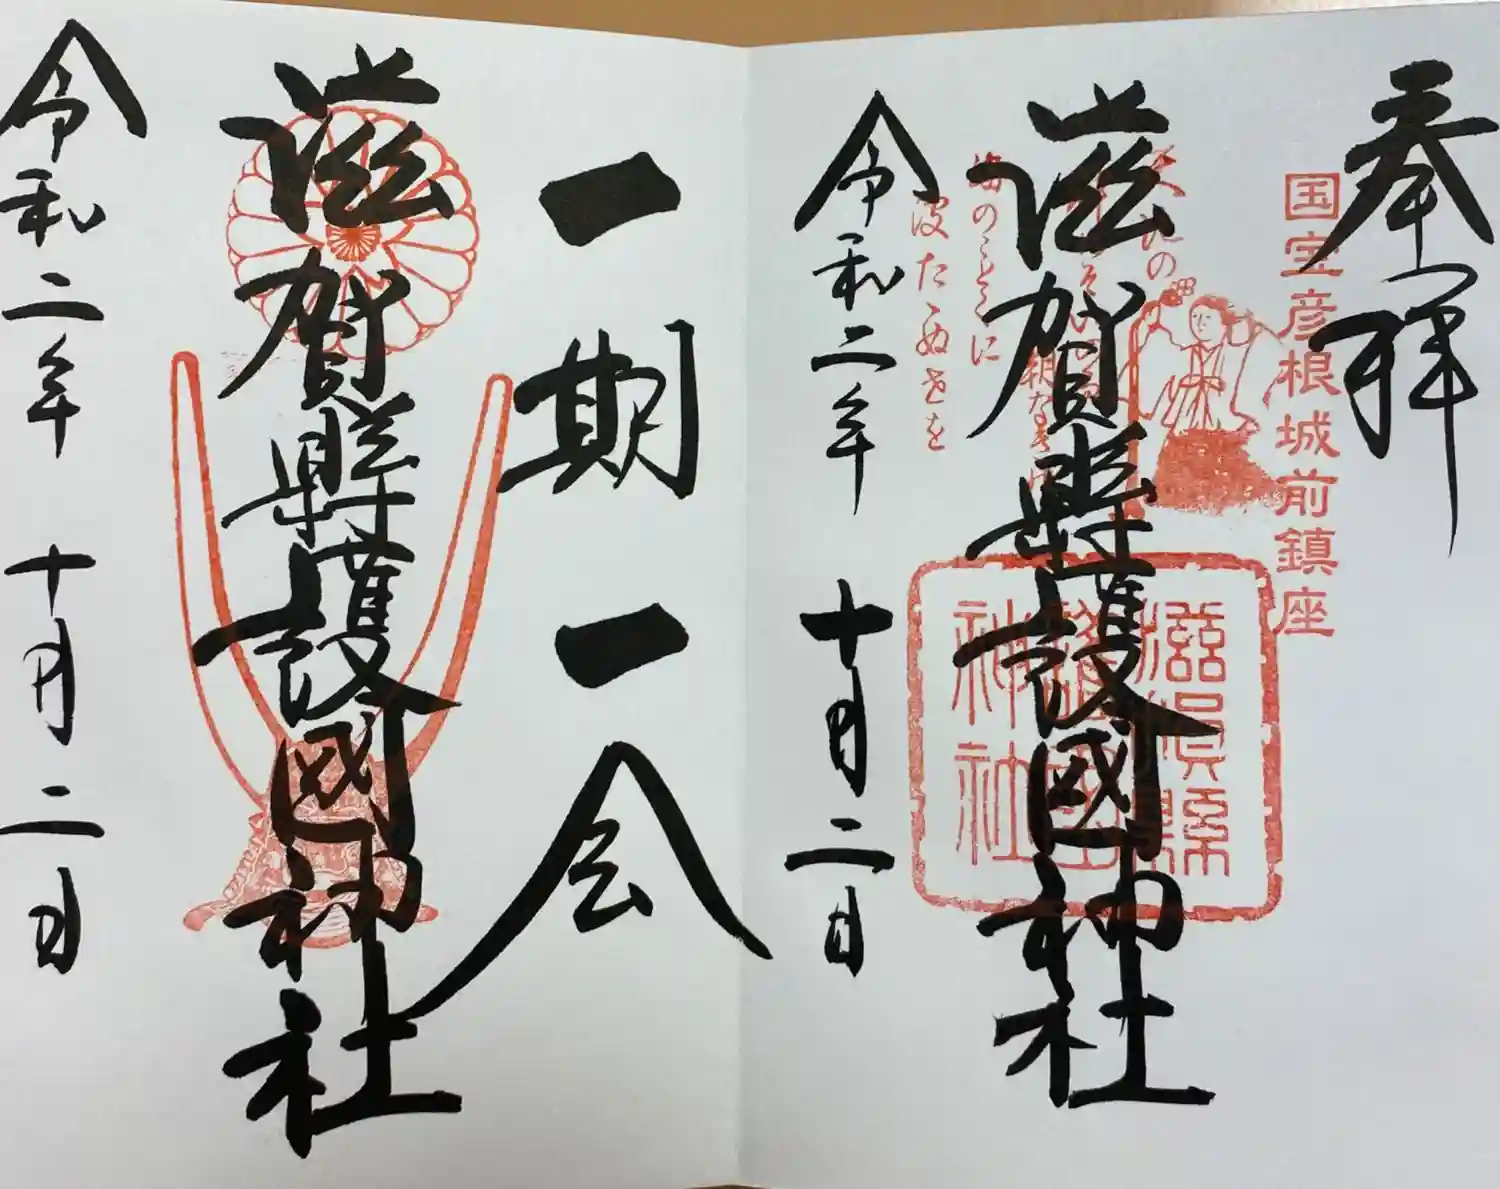 奉拝
国宝彦根城前鎮座
滋賀縣護國神社
滋賀縣
護國
神社
海のことに
波たゝぬせを
令和二年 十月二日
一期一会
滋賀縣護國神社
令和二年 十月二日